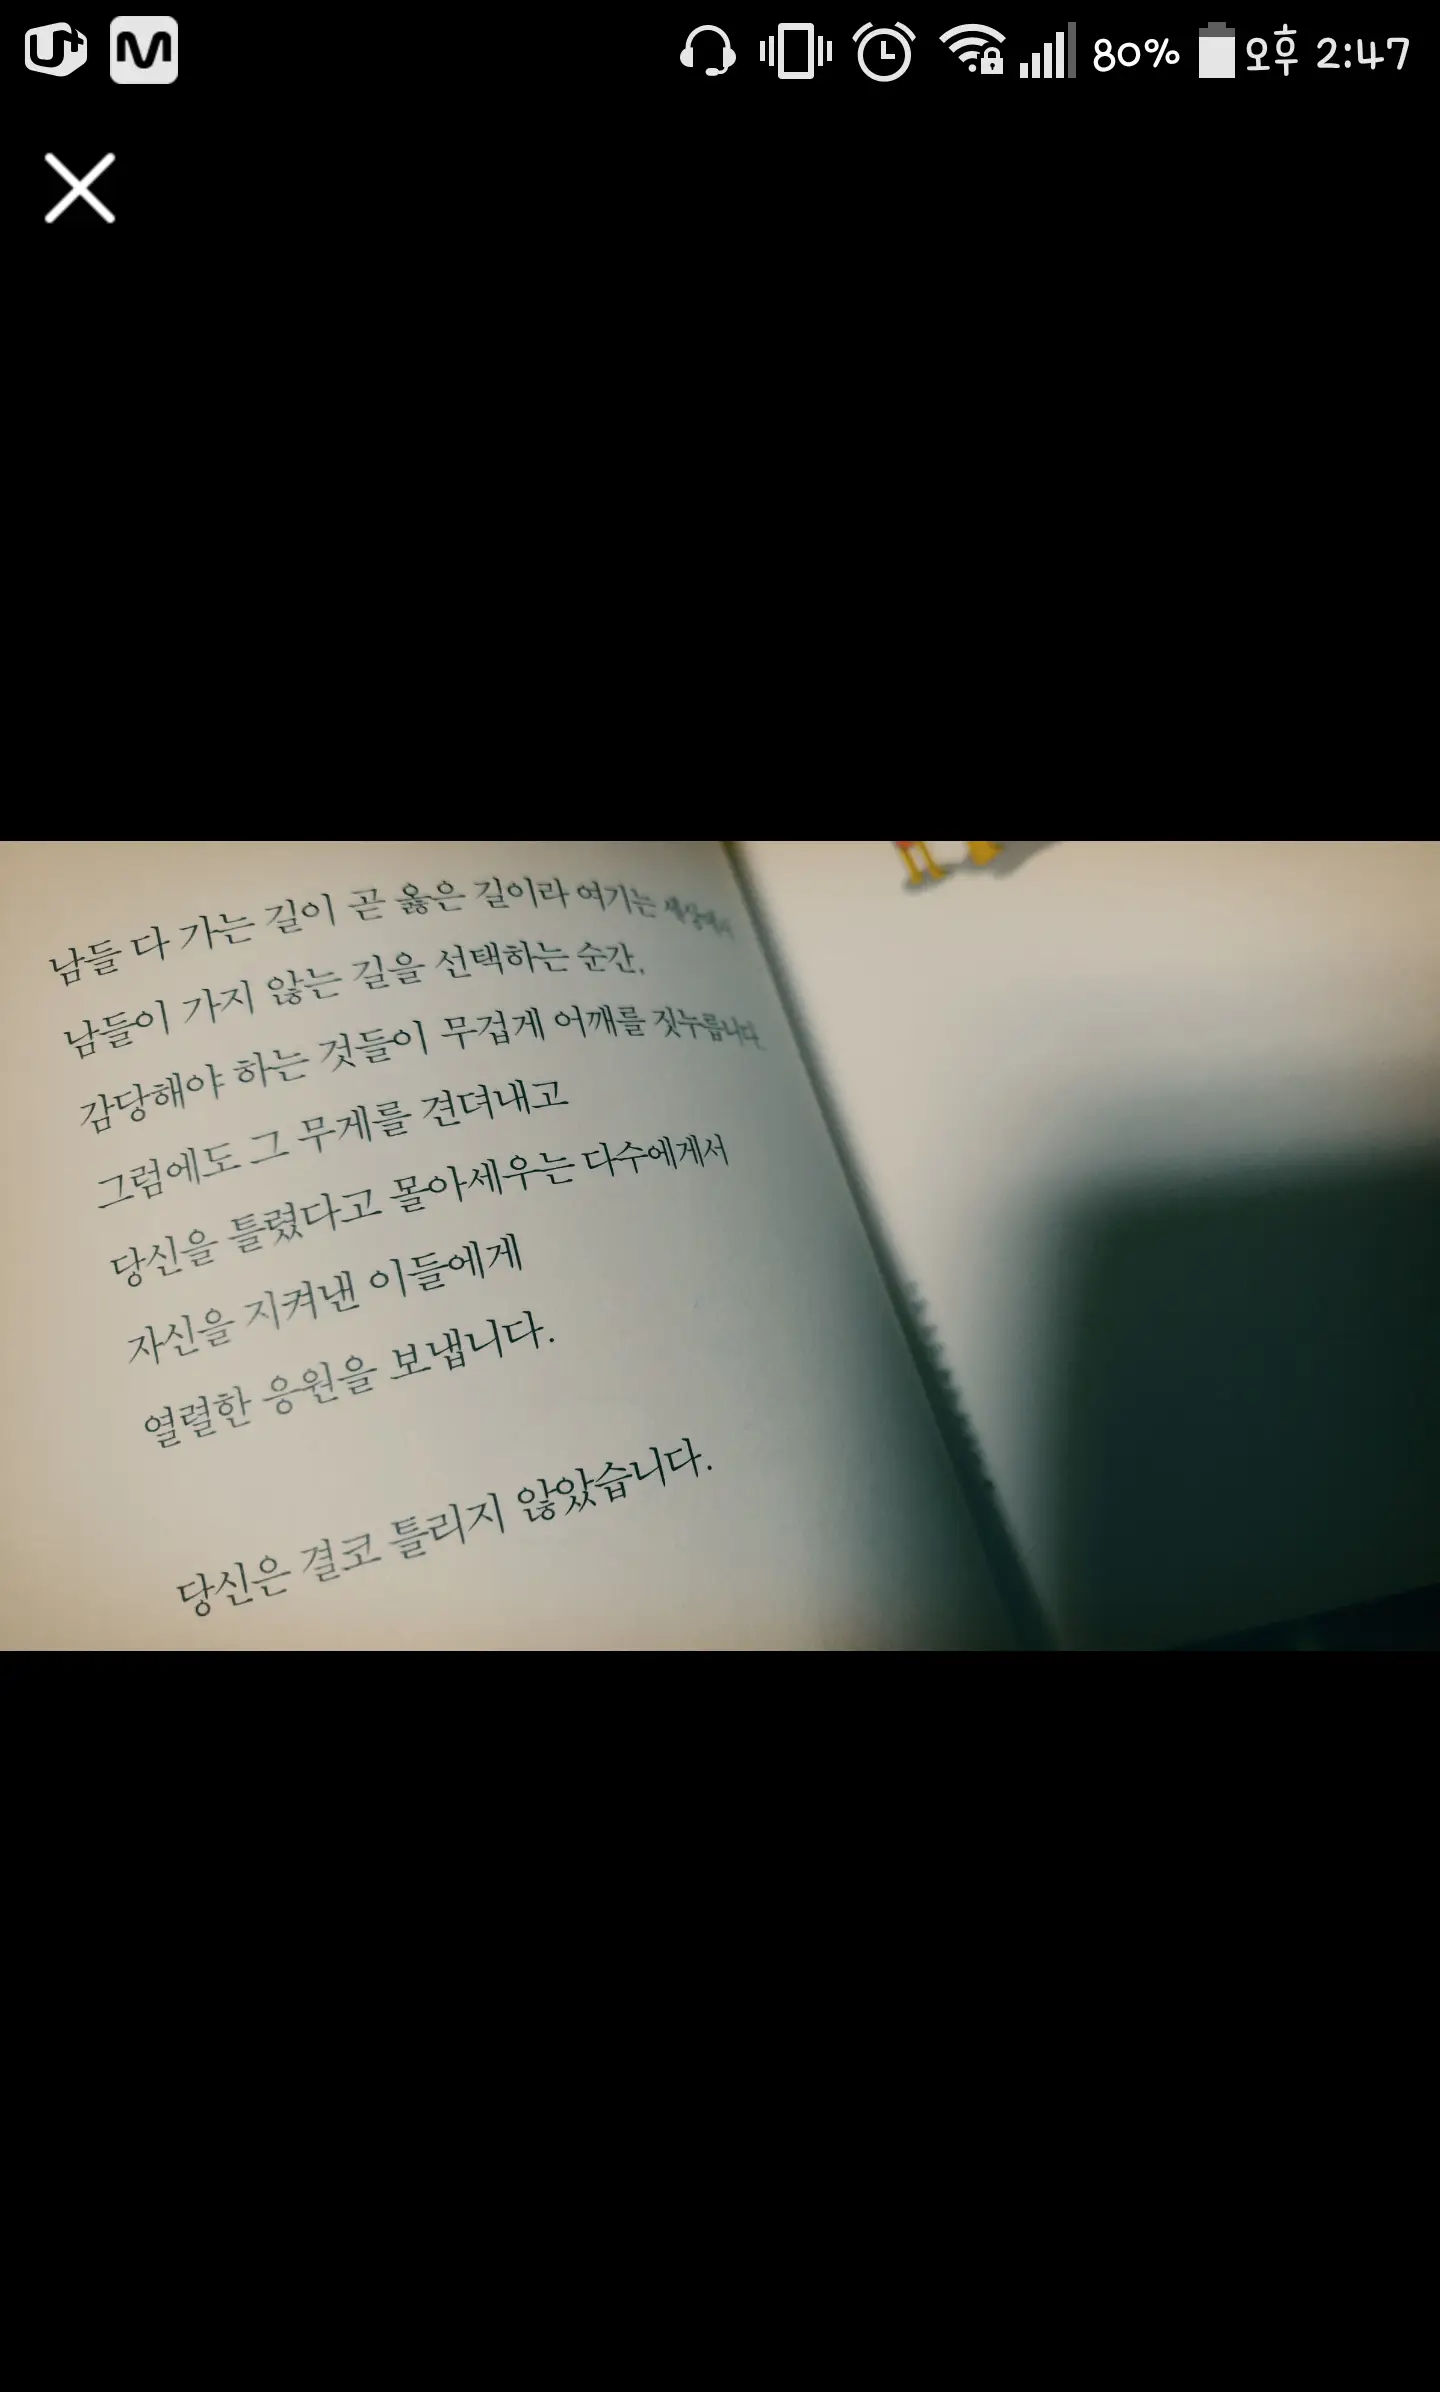 U+ M 80% 오후 2:47
남들 다 가는 길이 곧 옳은 길이라 여기는 세상에서
남들이 가지 않는 길을 선택하는 순간,
감당해야 하는 것들이 무겁게 어깨를 짓누릅니다.
그럼에도 그 무게를 견뎌내고
당신을 틀렸다고 몰아세우는 다수에게서
자신을 지켜낸 이들에게
열렬한 응원을 보냅니다.
당신은 결코 틀리지 않았습니다.